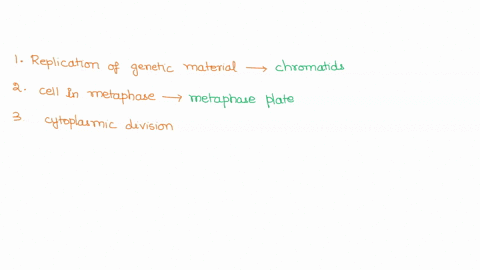 1. Replication of genetic material → chromatids
2. cell In metaphase → metaphase plate
3 cytoplasmic division